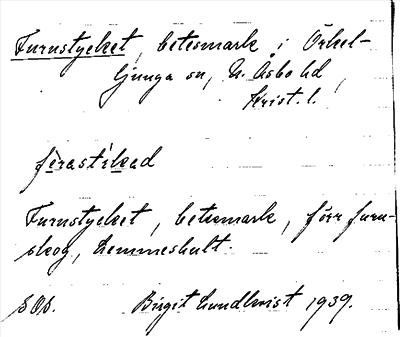 Furustycket, betesmark i Örkel-
ljunga sn, N. Åsbo hd,
Krist. l.
Furustycket, betesmark, förr furu-
skog, Lemmeshult.
Birgit Lundkvist 1939.